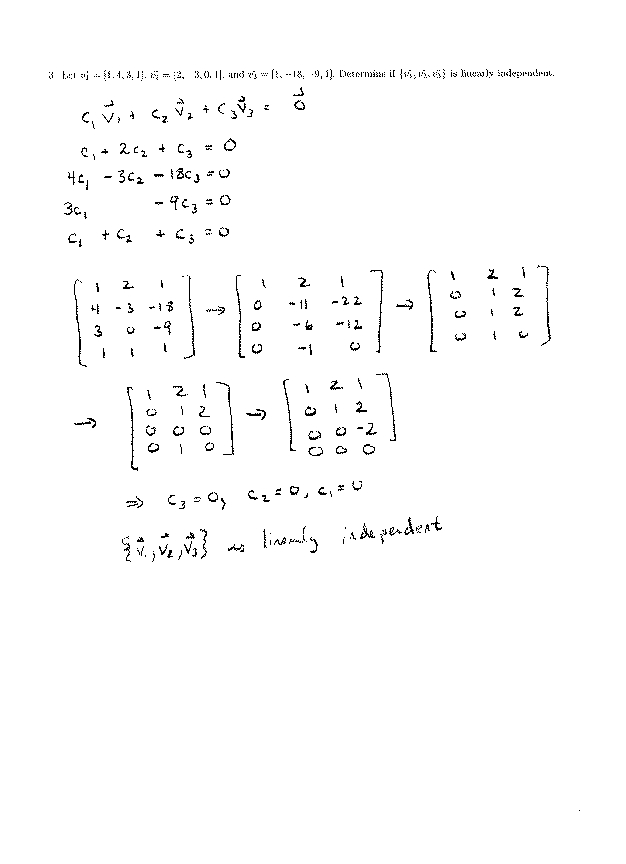 3. Let v⃗₁ = [1, 4, 3, 1], v⃗₂ = [2, −3, 0, 1], and v⃗₃ = [1, −18, −9, 1]. Determine if {v⃗₁, v⃗₂, v⃗₃} is linearly independent.
c₁v⃗₁ + c₂v⃗₂ + c₃v⃗₃ = 0⃗
c₁ + 2c₂ + c₃ = 0
4c₁ − 3c₂ − 18c₃ = 0
3c₁ − 9c₃ = 0
c₁ + c₂ + c₃ = 0
[1 2 1; 4 −3 −18; 3 0 −9; 1 1 1] → [1 2 1; 0 −11 −22; 0 −6 −12; 0 −1 0] → [1 2 1; 0 1 2; 0 1 2; 0 1 0]
→ [1 2 1; 0 1 2; 0 0 0; 0 1 0] → [1 2 1; 0 1 2; 0 0 −2; 0 0 0]
⇒ c₃ = 0, c₂ = 0, c₁ = 0
{v⃗₁, v⃗₂, v⃗₃} is linearly independent